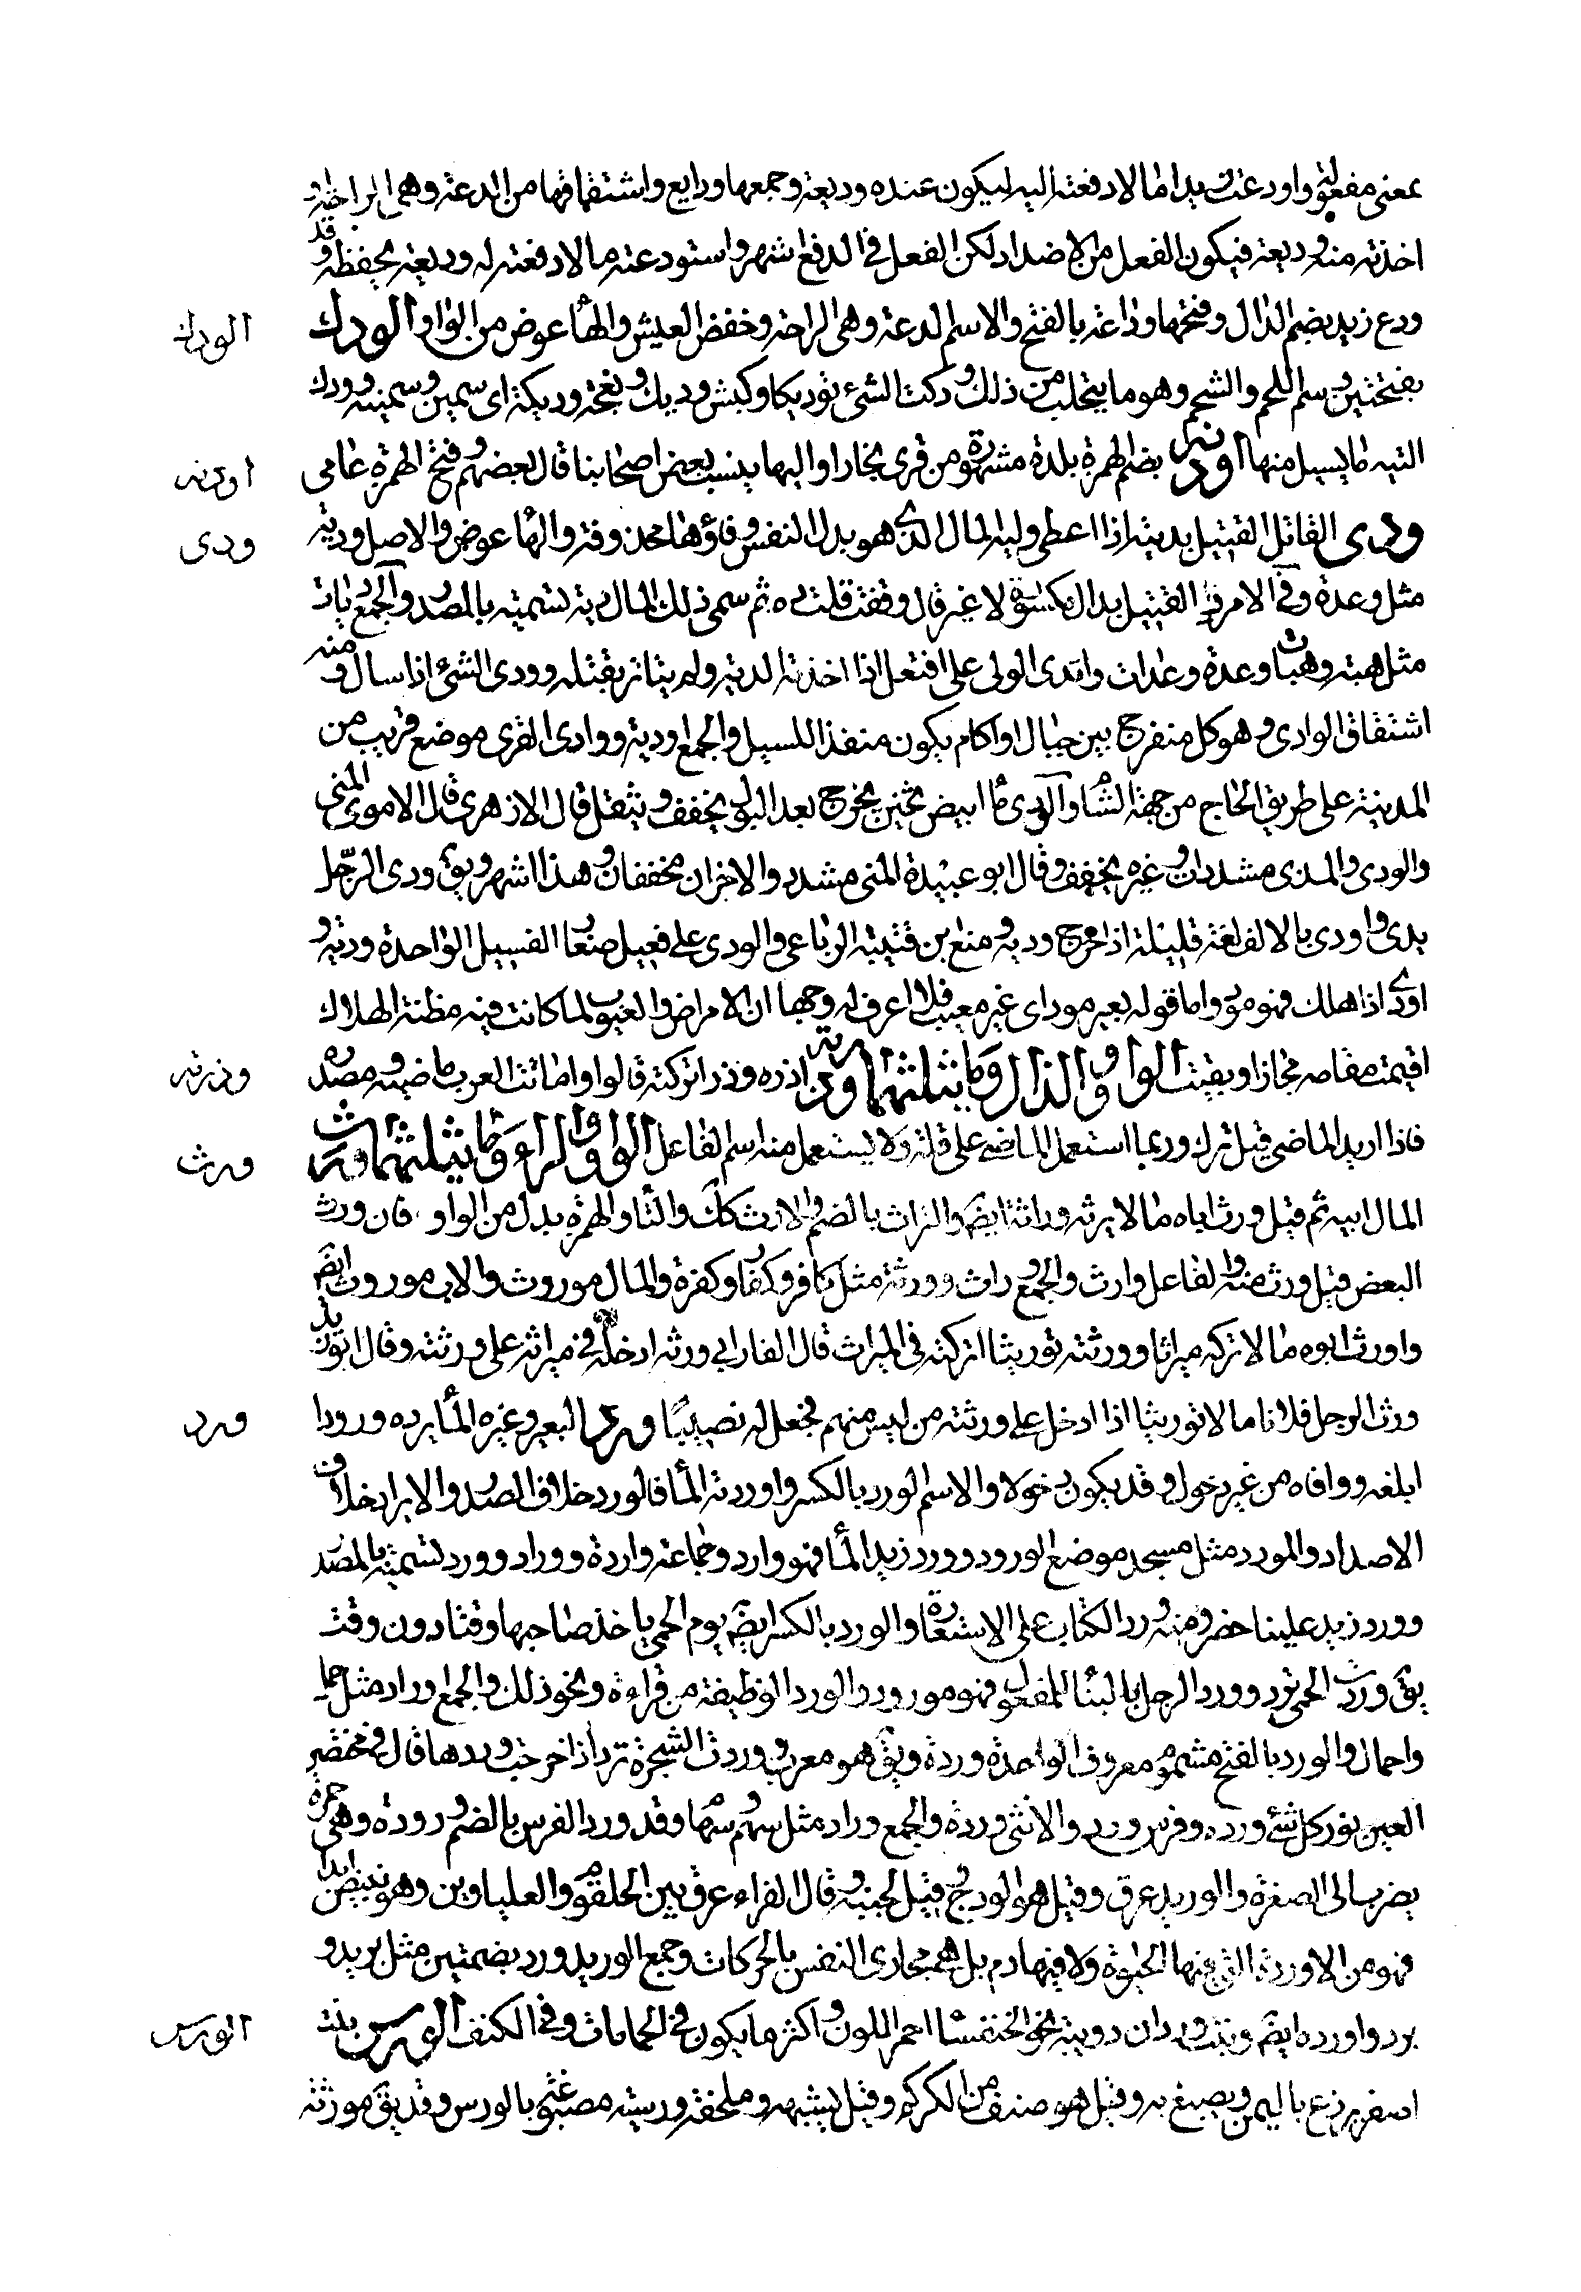 بمعنى مفعولة واودعت زيدا مالا دفعته اليه ليكون عنده وديعة وجمعها ودايع واشتقاقها من الدعة وهى الراحة او
اخذته منه وديعة فيكون الفعل من الاضداد لكن الفعل فى الدفع اشهر واستودعته مالا دفعته له وديعة يحفظه وقد
ودع زيد بضم الدال وفتحها وداعة بالفتح والاسم الدعة وهى الراحة وخفض العيش والهاء عوض من الواو الودك
الودك
بفتحتين دسم اللحم والشحم وهو ما يتحلب من ذلك ودكت الشىء توديكا وكبش وديك ونعجة وديكة اى سمين وسمينة وودك
الميتة ما يسيل منها اودنه بضم الهمزة بلدة مشهورة من قرى بخارا واليها ينسب بعض اصحابنا قال بعضهم وفتح الهمزة عامى
اودنه
ودى القاتل القتيل يديه دية اذا اعطى وليه المال الذى هو بدل النفس وفاؤها محذوفة والهاء عوض والاصل ودية
ودى
مثل وعدة وفى الامر د القتيل بدال مكسورة لا غير فان وقفت قلت ده ثم سمى ذلك المال دية تسمية بالمصدر والجمع ديات
مثل هبة وهبات وعدة وعدات واتدى الولى على افتعل اذا اخذ الدية ولم يثأر بقتله وودى الشىء اذا سال ومنه
اشتقاق الوادى وهو كل منفرج بين جبال او اكام يكون منفذا للسيل والجمع اودية ووادى القرى موضع قريب من
المدينة على طريق الحاج من جهة الشام والودى ماء ابيض ثخين يخرج بعد البول يخفف ويثقل قال الازهرى قال الاموى المنى
والودى والمذى مشددات وغيره يخفف وقال ابو عبيدة المنى مشدد والاخران مخففان وهذا اشهر ويق ودى الرجل
يدى واودى بالالف لغة قليلة اذا خرج وديه ومنع ابن قتيبة الرباعى والودى على فعيل صغار الفسيل الواحدة ودية و
اودى اذا هلك فهو مود واما قوله بعير مود اى غير معيب فلا اعرف له وجها الا ان الامراض والعيوب لما كانت فيه مظنة الهلاك
اقيمت مقامه مجازا وبقيت الواو والذال وما يثلثهما وذرته اذره وذرا تركته قالوا واماتت العرب ماضيه ومصدره
وذرته
فاذا اريد الماضى قيل ترك وربما استعمل الماضى على قلة ولا يستعمل منه اسم الفاعل الواو والراء وما يثلثهما ورث
ورث
المال ابيه ثم قيل ورث اباه مالا يرثه وراثة ايضا والتراث بالضم والارث كك والتاء والهمزة بدل من الواو فان ورث
البعض قيل ورث منه والفاعل وارث والجمع وراث وورثة مثل كافر وكفار وكفرة والمال موروث والاب موروث ايضا
واورث ابوه مالا تركه ميراثا وورثته توريثا اتركته فى الميراث قال الفارابى ورثه ادخله فى ميراثه على ورثته وقال ابو زيد
ورث الرجل فلانا مالا توريثا اذا ادخل على ورثته من ليس منهم فجعل له نصيبا ورد البعير وغيره الماء يرده ورودا
ورد
ابلغه ووافاه من غير دخول وقد يكون دخولا والاسم الورد بالكسر واوردته الماء فالورد خلاف الصدر والايراد خلاف
الاصدار والمورد مثل مسجد موضع الورود وورد زيد الماء فهو وارد وجماعة واردة ووراد وورد تسمية بالمصدر
وورد زيد علينا حضر ومنه ورد الكتاب على الاستعارة والورد بالكسر ايضا يوم الحمى ياخذ صاحبها وقتا دون وقت
يق وردت الحمى ترد وورد الرجل بالبناء للمفعول فهو مورود والورد الوظيفة من قراءة ونحو ذلك والجمع اوراد مثل حمل
واحمال والورد بالفتح مشموم معروف الواحدة وردة ويق هو معرب ووردت الشجرة ترد اذا خرجت وردها قال فى مختصر
العين نور كل شىء ورده وفرس ورد والانثى وردة والجمع وراد مثل سهم وسهام وقد ورد الفرس بالضم ورودة وهى حمرة
يضرب الى الصفرة والوريد عرق وقيل هو الودج وقيل بجنبه وقال الفراء عرق بين الحلقوم والعلباوين وهو ينبض ابدا
فهو من الاوردة التى فيها الحيوة ولا فيها دم بل هى مجارى النفس بالحركات وجمع الوريد ورد بضمتين مثل بريد و
برد واوردة ايضا وبنت وردان دويبة نحو الخنفساء احمر اللون واكثر ما يكون فى الحمامات وفى الكنف الورس نبت
الورس
اصفر يزرع باليمن ويصبغ به وقيل هو صنف من الكركم وقيل يشبهه وملحفة ورسية مصبوغة بالورس وقد يق مورثة